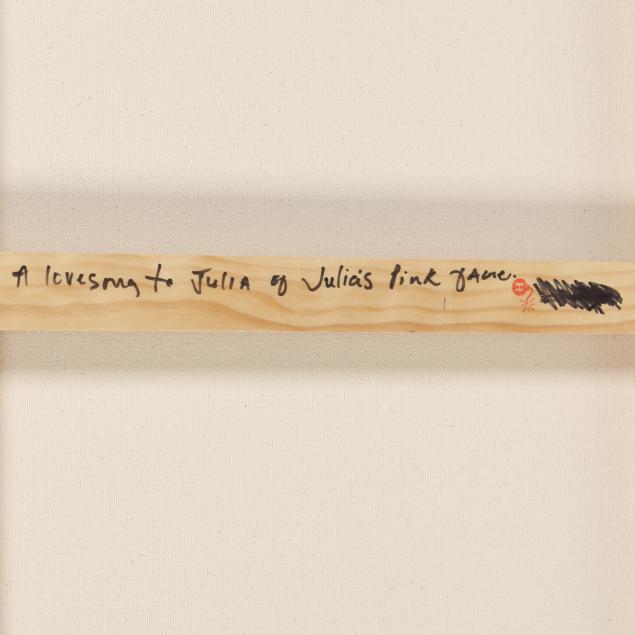 A lovesong to Julia of Julia's Pink